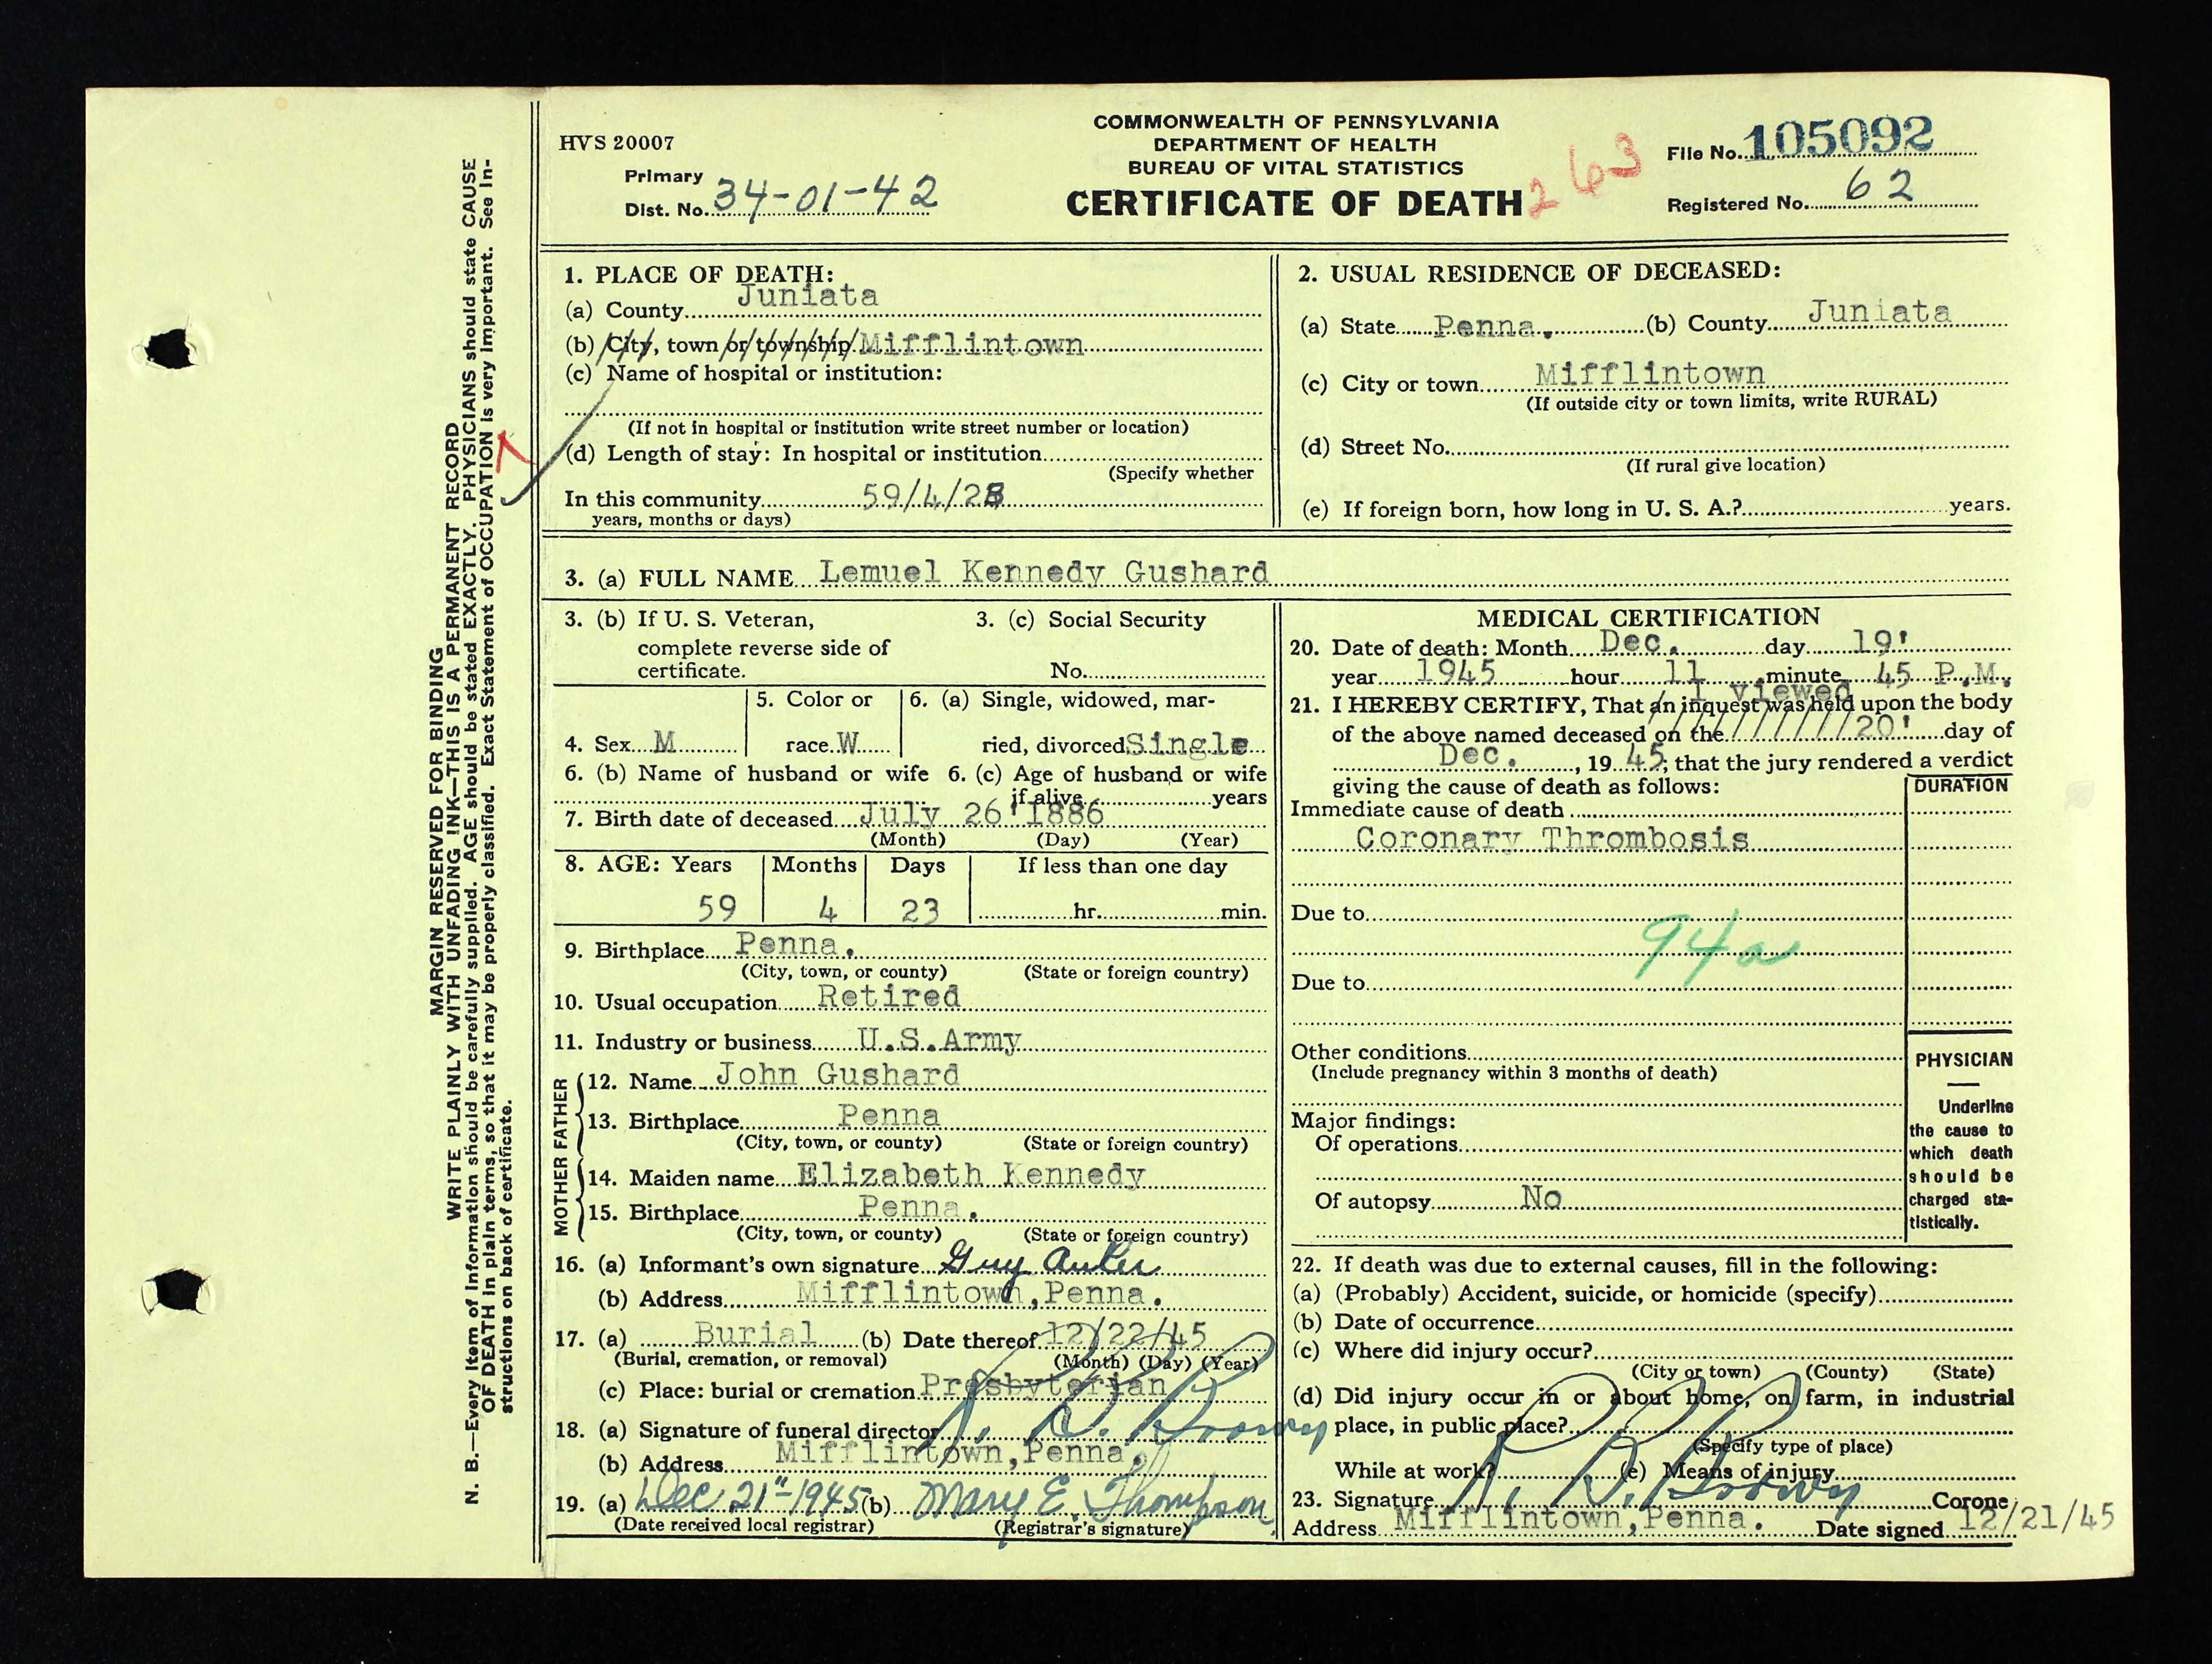 MARGIN RESERVED FOR BINDING
WRITE PLAINLY WITH UNFADING INK—THIS IS A PERMANENT RECORD
N. B.—Every item of information should be carefully supplied. AGE should be stated EXACTLY. PHYSICIANS should state CAUSE
OF DEATH in plain terms, so that it may be properly classified. Exact Statement of OCCUPATION is very important. See In-
structions on back of certificate.
HVS 20007
Primary
Dist. No. 34-01-42
COMMONWEALTH OF PENNSYLVANIA
DEPARTMENT OF HEALTH
BUREAU OF VITAL STATISTICS
CERTIFICATE OF DEATH
263
File No. 105092
Registered No. 62
1. PLACE OF DEATH:
(a) County Juniata
(b) City, town or township Mifflintown
(c) Name of hospital or institution:
(If not in hospital or institution write street number or location)
(d) Length of stay: In hospital or institution
(Specify whether
In this community 59/4/23
years, months or days)
2. USUAL RESIDENCE OF DECEASED:
(a) State Penna. (b) County Juniata
(c) City or town Mifflintown
(If outside city or town limits, write RURAL)
(d) Street No.
(If rural give location)
(e) If foreign born, how long in U. S. A.? years.
3. (a) FULL NAME Lemuel Kennedy Gushard
3. (b) If U. S. Veteran,
complete reverse side of
certificate.
3. (c) Social Security
No.
4. Sex M
5. Color or
race W
6. (a) Single, widowed, mar-
ried, divorced Single
6. (b) Name of husband or wife 6. (c) Age of husband or wife
if alive years
7. Birth date of deceased July 26' 1886
(Month) (Day) (Year)
8. AGE: Years Months Days If less than one day
59 4 23 hr. min.
9. Birthplace Penna.
(City, town, or county) (State or foreign country)
10. Usual occupation Retired
11. Industry or business U.S.Army
FATHER
12. Name John Gushard
13. Birthplace Penna
(City, town, or county) (State or foreign country)
MOTHER
14. Maiden name Elizabeth Kennedy
15. Birthplace Penna.
(City, town, or county) (State or foreign country)
16. (a) Informant's own signature Guy
(b) Address Mifflintown,Penna.
17. (a) Burial (b) Date thereof 12/22/45
(Burial, cremation, or removal) (Month) (Day) (Year)
(c) Place: burial or cremation Presbyterian
18. (a) Signature of funeral director
(b) Address Mifflintown,Penna.
19. (a) Dec 21" 1945 (b) Mary E. Thompson
(Date received local registrar) (Registrar's signature)
MEDICAL CERTIFICATION
20. Date of death: Month Dec. day 19'
year 1945 hour 11 minute 45 P.M.
I viewed
21. I HEREBY CERTIFY, That an inquest was held upon the body
of the above named deceased on the 20' day of
Dec. , 19 45, that the jury rendered a verdict
giving the cause of death as follows:
DURATION
Immediate cause of death
Coronary Thrombosis
Due to
94a
Due to
Other conditions
(Include pregnancy within 3 months of death)
Major findings:
Of operations
Of autopsy No
PHYSICIAN
—
Underline
the cause to
which death
should be
charged sta-
tistically.
22. If death was due to external causes, fill in the following:
(a) (Probably) Accident, suicide, or homicide (specify)
(b) Date of occurrence
(c) Where did injury occur?
(City or town) (County) (State)
(d) Did injury occur in or about home, on farm, in industrial
place, in public place?
(Specify type of place)
While at work? (e) Means of injury
23. Signature Corone
Address Mifflintown,Penna. Date signed 12/21/45